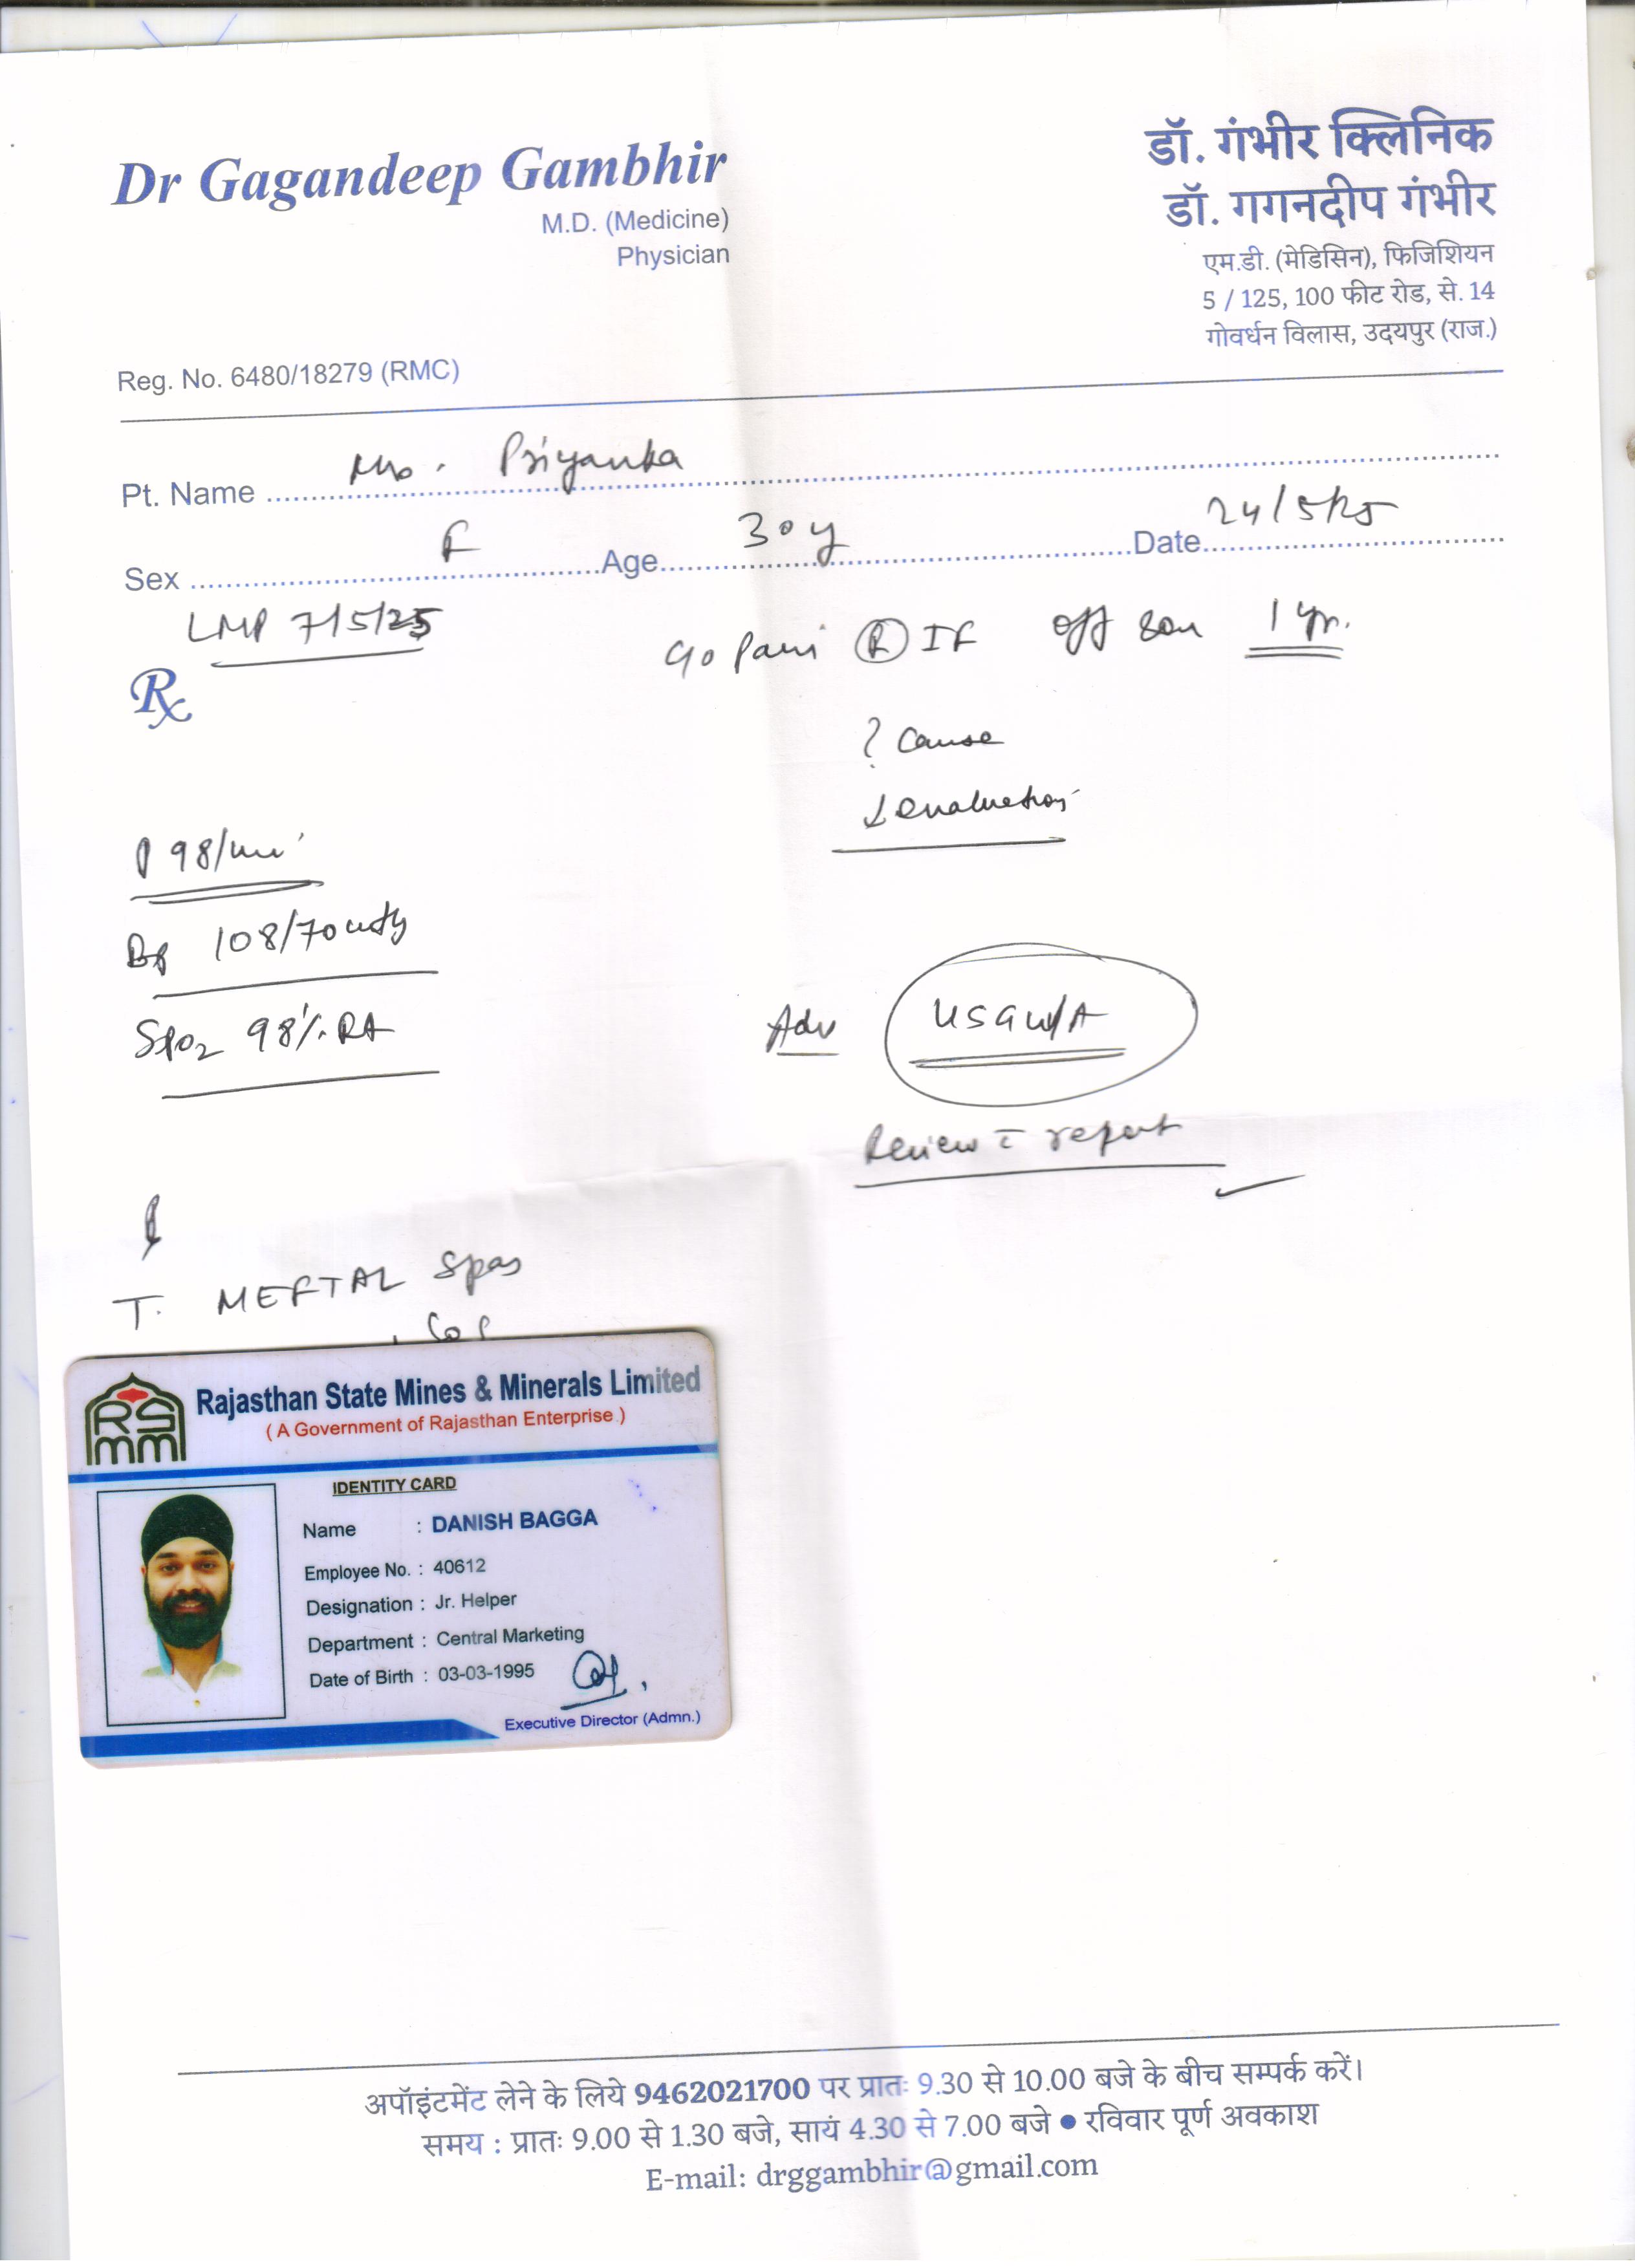 Dr Gagandeep Gambhir
M.D. (Medicine)
Physician
Reg. No. 6480/18279 (RMC)
डॉ. गंभीर क्लिनिक
डॉ. गगनदीप गंभीर
एम.डी. (मेडिसिन), फिजिशियन
5 / 125, 100 फीट रोड, से. 14
गोवर्धन विलास, उदयपुर (राज.)
Pt. Name Mrs. Priyanka
Sex F Age 30y Date 24/5/25
LMP 7/5/25
Rx
Pain R IF off & on 1 yr.
? Cause
evaluation
P 98/min
BP 108/70
SpO2 98% RA
Adv USG W/A
Review c report
T. MEFTAL Spas
Rajasthan State Mines & Minerals Limited
( A Government of Rajasthan Enterprise )
RSMM
IDENTITY CARD
Name : DANISH BAGGA
Employee No. : 40612
Designation : Jr. Helper
Department : Central Marketing
Date of Birth : 03-03-1995
Executive Director (Admn.)
अपॉइंटमेंट लेने के लिये 9462021700 पर प्रातः 9.30 से 10.00 बजे के बीच सम्पर्क करें।
समय : प्रातः 9.00 से 1.30 बजे, सायं 4.30 से 7.00 बजे ● रविवार पूर्ण अवकाश
E-mail: drggambhir@gmail.com